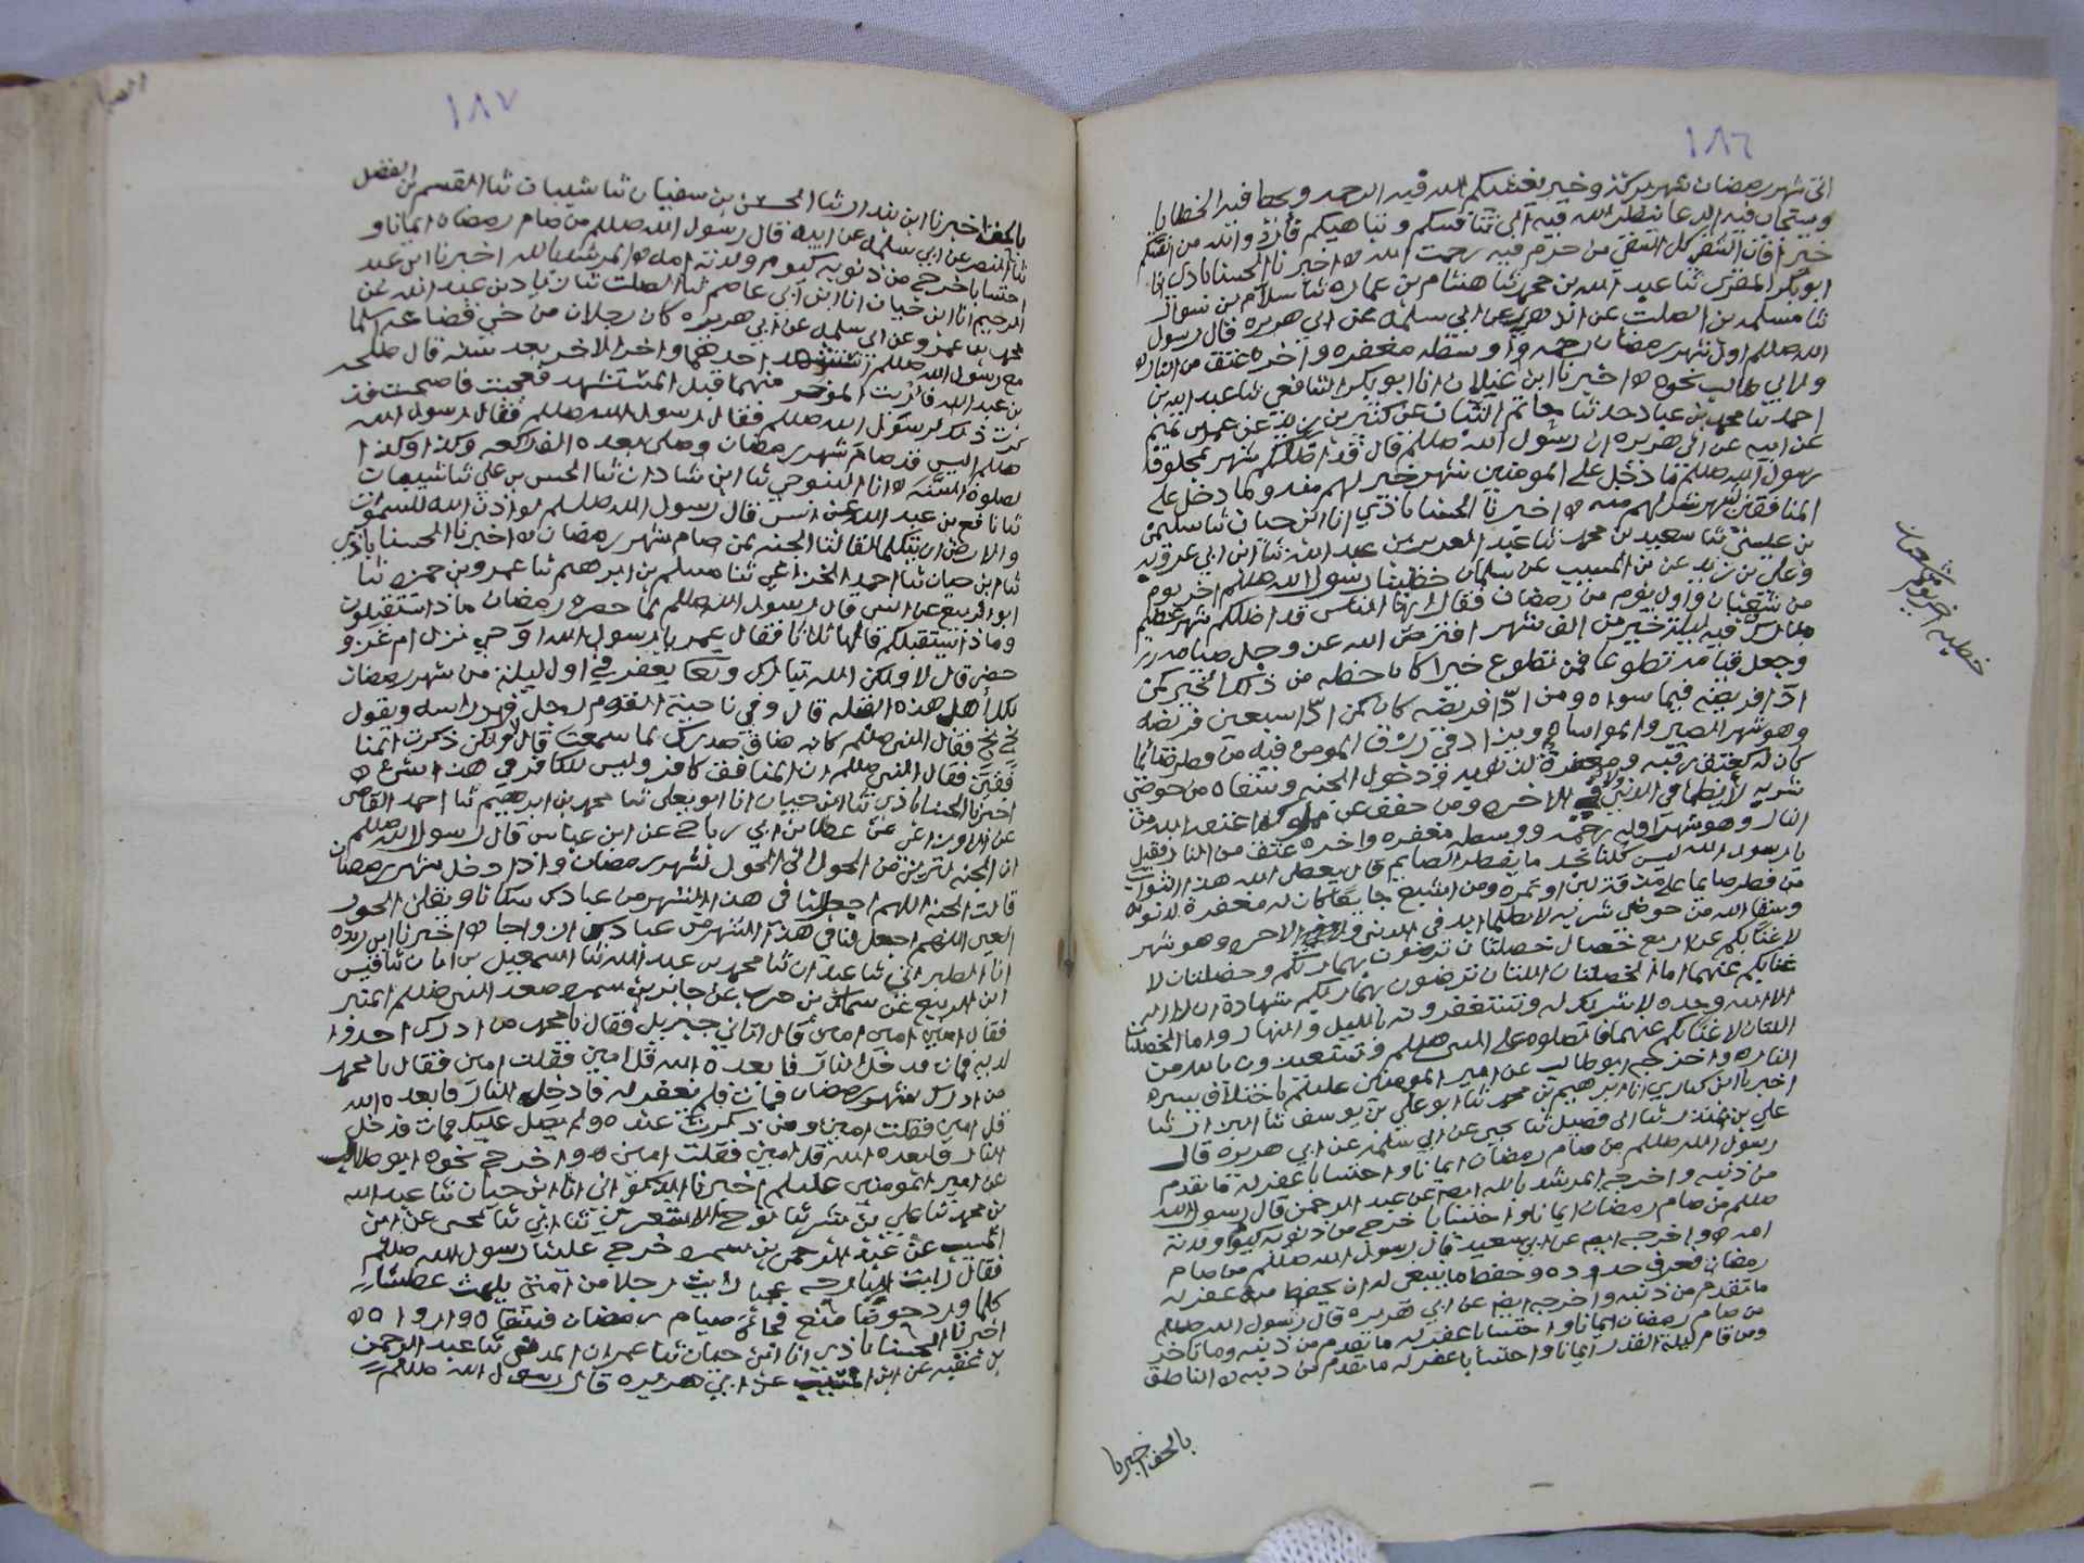 ١٨٦
اتى شهر رمضان شهر بركة وخير يغشيكم الله فيه الرحمه ويحط فيه الخطايا
ويستجاب فيه الدعا ينظر الله فيه الى تنافسكم ويباهيكم فأروا الله من انفسكم
خيرا فان الشقي كل الشقي من حرم فيه رحمت الله ه اخبرنا الحسناباذي انا
ابو بكر المقري ثنا عبد الله بن محمد ثنا هشام بن عماره ثنا سلام بن سوار
ثنا مسلمه بن الصلت عن الزهري عن ابي سلمه عن ابي هريره قال رسول
الله صللم اول شهر رمضان رحمه واوسطه مغفره واخره عتق من النار ه
ولابي طالب نحوه ه اخبرنا ابن غيلان انا ابو بكر الشافعي ثنا عبد الله بن
احمد ثنا محمد بن عباد حدثنا حاتم عن كثير بن زيد عن عمرو بن تميم
عن ابيه عن ابي هريره ان رسول الله صللم قال قد اظلكم شهركم بمحلوف
رسول الله صللم ما دخل على المومنين شهر خير لهم منه وما دخل على
المنافقين شهر شر لهم منه ه اخبرنا الحسناباذي انا ابن حيان ثنا سليمن
بن عيسى ثنا سعيد بن محمد ثنا عبد العزيز بن عبد الله ثنا ابن ابي عروبه
وعلي بن زيد عن بن المسيب عن سلمان خطبنا رسول الله صللم اخر يوم
من شعبان واول يوم من رمضان فقال ايها الناس قد اظلكم شهر عظيم
مبارك فيه ليلة خير من الف شهر افترض الله عز وجل صيامه
وجعل قيامه تطوعا فمن تطوع خيرا كان حظه من ذلك الخير كمن
ادّا فريضه فيما سواه ومن ادّا فريضه كان كمن ادّا سبعين فريضه
وهو شهر الصبر والمواساه ويزاد في رزق المومن فيه من فطر صائما
كان له كعتق رقبه ومغفرة لذنوبه ودخول الجنه وسقاه من حوضي
شربه لا يظما في الدنيا ولا في الاخره ومن خفف عن مملوكه اعتقه الله من
النار وهو شهر اوله رحمه ووسطه مغفره واخره عتق من النار فقيل
يا رسول الله ليس كلنا يجد ما يفطر الصايم قال يعطي الله هذا الثواب
من فطر صايما على مذقة لبن او تمره ومن اشبع جايعا كان له مغفرة لذنوبه
وسقاه الله من حوضي شربه لا يظما ابدا في الدنيا ولا في الاخره وهو شهر
لا غنا بكم عن اربع خصال خصلتان ترضون بهما ربكم وخصلتان لا
غنابكم عنهما اما الخصلتان اللتان ترضون بهما ربكم شهادة ان لا اله
الا الله وحده لا شريك له وتستغفرونه بالليل والنهار واما الخصلتان
اللتان لا غنا بكم عنهما فالصلوه على النبي صللم وتستعيذون بالله من
النار ه واخرجه ابو طالب عن امير المومنين عليلم باختلاف يسير ه
اخبرنا ابن كباري انا ابرهيم بن محمد ثنا ابو علي بن يوسف ثنا البزاز ثنا
علي بن المنذر ثنا ابن فضيل ثنا يحيى عن ابي سلمه عن ابي هريره قال
رسول الله صللم من صام رمضان ايمانا واحتسابا غفر له ما تقدم
من ذنبه واخرجه المرشد بالله ايضا عن عبد الرحمن قال رسول الله
صللم من صام رمضان ايمانا واحتسابا خرج من ذنوبه كيوم ولدته
امه ه واخرجه ايضا عن ابي سعيد قال رسول الله صللم من صام
رمضان فعرف حدوده وحفظ ما ينبغي له ان يحفظ منه غفر له
ما تقدم من ذنبه واخرجه ايضا عن ابي هريره قال رسول الله صللم
من صام رمضان ايمانا واحتسابا غفر له ما تقدم من ذنبه وما تاخر
ومن قام ليلة القدر ايمانا واحتسابا غفر له ما تقدم من ذنبه ه الناطق
بالحق اخبرنا
خطبه اخر يوم من شعبان
١٨٧
بالحق اخبرنا ابن بندار ثنا الحسن بن سفيان ثنا شيبان ثنا القسم بن الفضل
ثنا النضر عن ابي سلمه عن ابيه قال رسول الله صللم من صام رمضان ايمانا و
احتسابا خرج من ذنوبه كيوم ولدته امه ه المرشد بالله اخبرنا ابن عبد
الرحيم انا ابن حيان انا ابن ابي عاصم ثنا الصلت ثنا زياد بن عبد الله عن
محمد بن عمرو عن ابي سلمه عن ابي هريره كان رجلان من حي قضاعه اسلما
مع رسول الله صللم استشهد احدهما واخر الاخر بعد سنه قال طلحه
بن عبد الله فاريت الموخر منهما قبل المستشهد فعجبت فاصبحت فذ
كرت ذلك لرسول الله صللم فقال رسول الله صللم فقال رسول الله
صللم اليس قد صام شهر رمضان وصلى بعده الف ركعه وكذا وكذا
لصلوة السنه ه انا التنوخي ثنا ابن شاذان ثنا الحسن بن علي ثنا شيبان
ثنا نافع بن عبد الله عن انس قال رسول الله صللم لو اذن الله للسموات
والارض ان يتكلما لقالتا الجنه لمن صام شهر رمضان ه اخبرنا الحسناباذي
ثنا ابن حيان ثنا احمد الخزاعي ثنا مسلم بن ابرهيم ثنا عمرو بن حمزه ثنا
ابو الربيع عن انس قال رسول الله صللم لما حضر رمضان ماذا تستقبلون
وماذا يستقبلكم قالها ثلاثا فقال عمر يا رسول الله اوحي نزل ام عدو
حضر قال لا ولكن الله تبارك وتعا يغفر في اول ليلة من شهر رمضان
لكل اهل هذه القبله قال وفي ناحية القوم رجل فهز راسه ويقول
بخ بخ فقال النبي صللم كانه ضاق صدرك بما سمعت قال لا ولكن ذكرت المنا
فقين فقال النبي صللم ان المنافق كافر وليس للكافر في هذا شيء ه
اخبرنا الحسناباذي ثنا ابن حيان انا ابو يعلى ثنا محمد بن ابرهيم ثنا احمد القاضي
عن الاوزاعي عن عطا بن ابي رباح عن ابن عباس قال رسول الله صللم
ان الجنه لتزين من الحول الى الحول لشهر رمضان واذا دخل شهر رمضان
قالت الجنه اللهم اجعل لنا في هذا الشهر من عبادك سكانا ويقلن الحور
العين اللهم اجعل لنا في هذا الشهر من عبادك ازواجا ه اخبرنا ابن ريذه
انا الطبراني ثنا عبدان ثنا محمد بن عبد الله ثنا اسمعيل بن ابان ثنا قيس
ابن الربيع عن سماك بن حرب عن جابر بن سمره صعد النبي صللم المنبر
فقال امين امين امين قال اتاني جبريل فقال يا محمد من ادرك احد وا
لديه فمات فدخل النار فابعده الله قل امين فقلت امين فقال يا محمد
من ادرك شهر رمضان فمات فلم يغفر له فادخل النار فابعده الله
قل امين فقلت امين ومن ذكرت عنده ولم يصل عليك فمات فدخل
النار فابعده الله قل امين فقلت امين ه واخرج نحوه ابو طالب
عن امير المومنين عليلم اخبرنا الذكواني انا ابن حيان ثنا عبد الله
بن محمد ثنا علي بن بشر ثنا نوح الاشعري ثنا ابي ثنا يحيى عن ابن
المسيب عن عبد الرحمن بن سمره خرج علينا رسول الله صللم
فقال رايت البارحه عجبا رايت رجلا من امتي يلهث عطشا
كلما ورد حوضا منع فجاه صيام رمضان فسقاه وارواه ه
اخبرنا الحسناباذي انا ابن حيان ثنا عمران ثنا عبد الرحمن
بن عقبه عن ابن المسيب عن ابي هريره قال رسول الله صللم